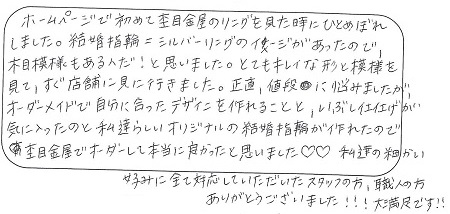 ホームページで初めて杢目金屋のリングを見た時にひとめぼれ
しました。結婚指輪=シルバーリングのイメージがあったので、
木目模様もあるんだ!と思いました。とてもキレイな形と模様を
見て、すぐ店舗に見に行きました。正直、値段に悩みましたが、
オーダーメイドで自分に合ったデザインを作れることと、いぶし仕上げが
気に入ったのと私達らしいオリジナルの結婚指輪が作れたので
杢目金屋でオーダーして本当に良かったと思いました♡♡ 私達の細かい
好みに全て対応していただいたスタッフの方、職人の方
ありがとうございました!!!大満足です!!